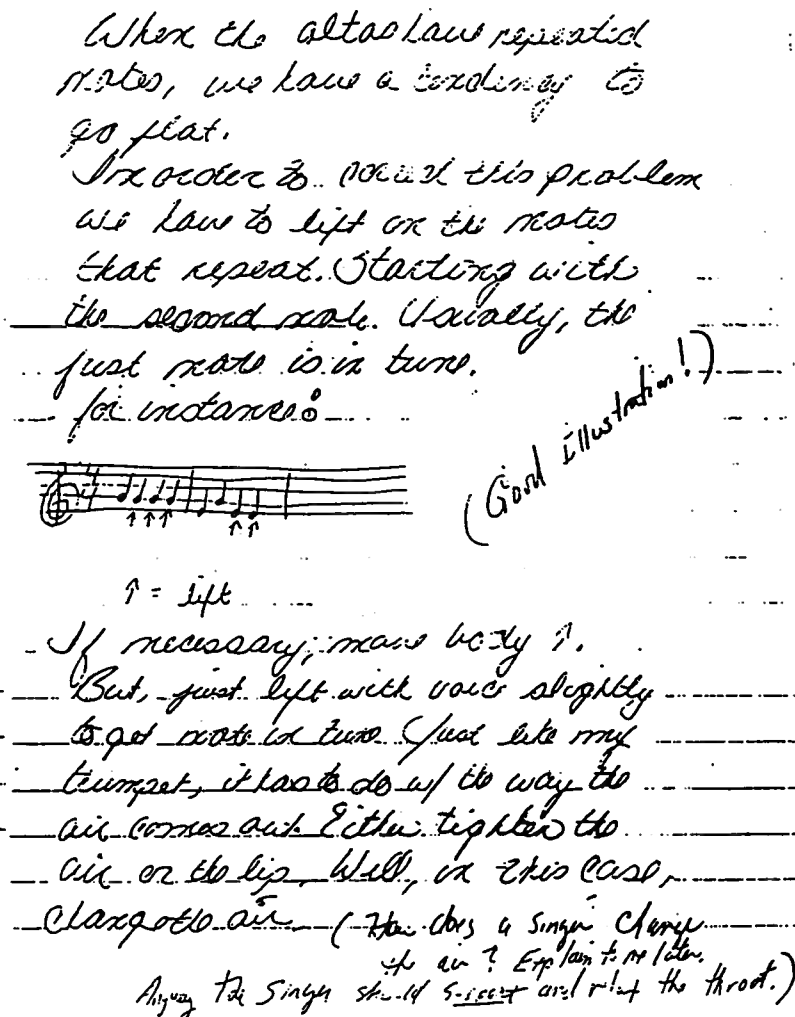 When the altos have repeated
notes, we have a tendency to
go flat.
In order to this problem
we have to lift on the notes
that repeat. Starting with
the second note. Usually, the
first note is in tune.
for instance:
(Good Illustration!)
↑ ↑ ↑ ↑ ↑
↑ = lift
If necessary, move body ↑.
But, just lift with voice slightly
to get note in tune (Just like my
trumpet, it has to do w/ the way the
air comes out. Either tighten the
air or the lip. Well, in this case,
change the air (How does a singer change
the air? Explain to me later.
Anyway the singer should support and relax the throat.)